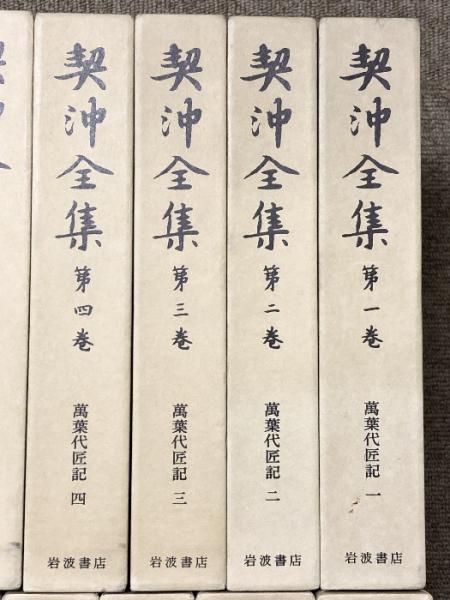 契沖全集
第一巻
萬葉代匠記 一
岩波書店
契沖全集
第二巻
萬葉代匠記 二
岩波書店
契沖全集
第三巻
萬葉代匠記 三
岩波書店
契沖全集
第四巻
萬葉代匠記 四
岩波書店